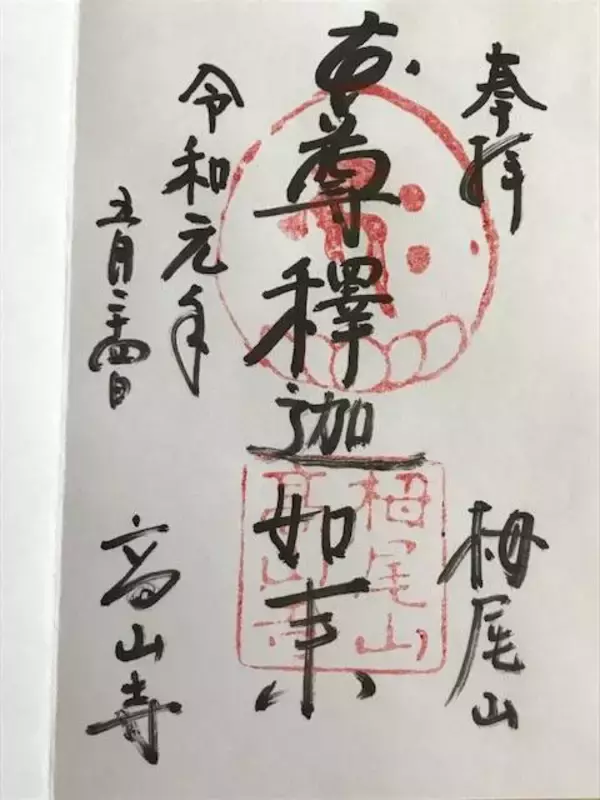 奉拝
栂尾山
本尊釋迦如来
栂尾山
高山寺
令和元年
五月二十四日
高山寺